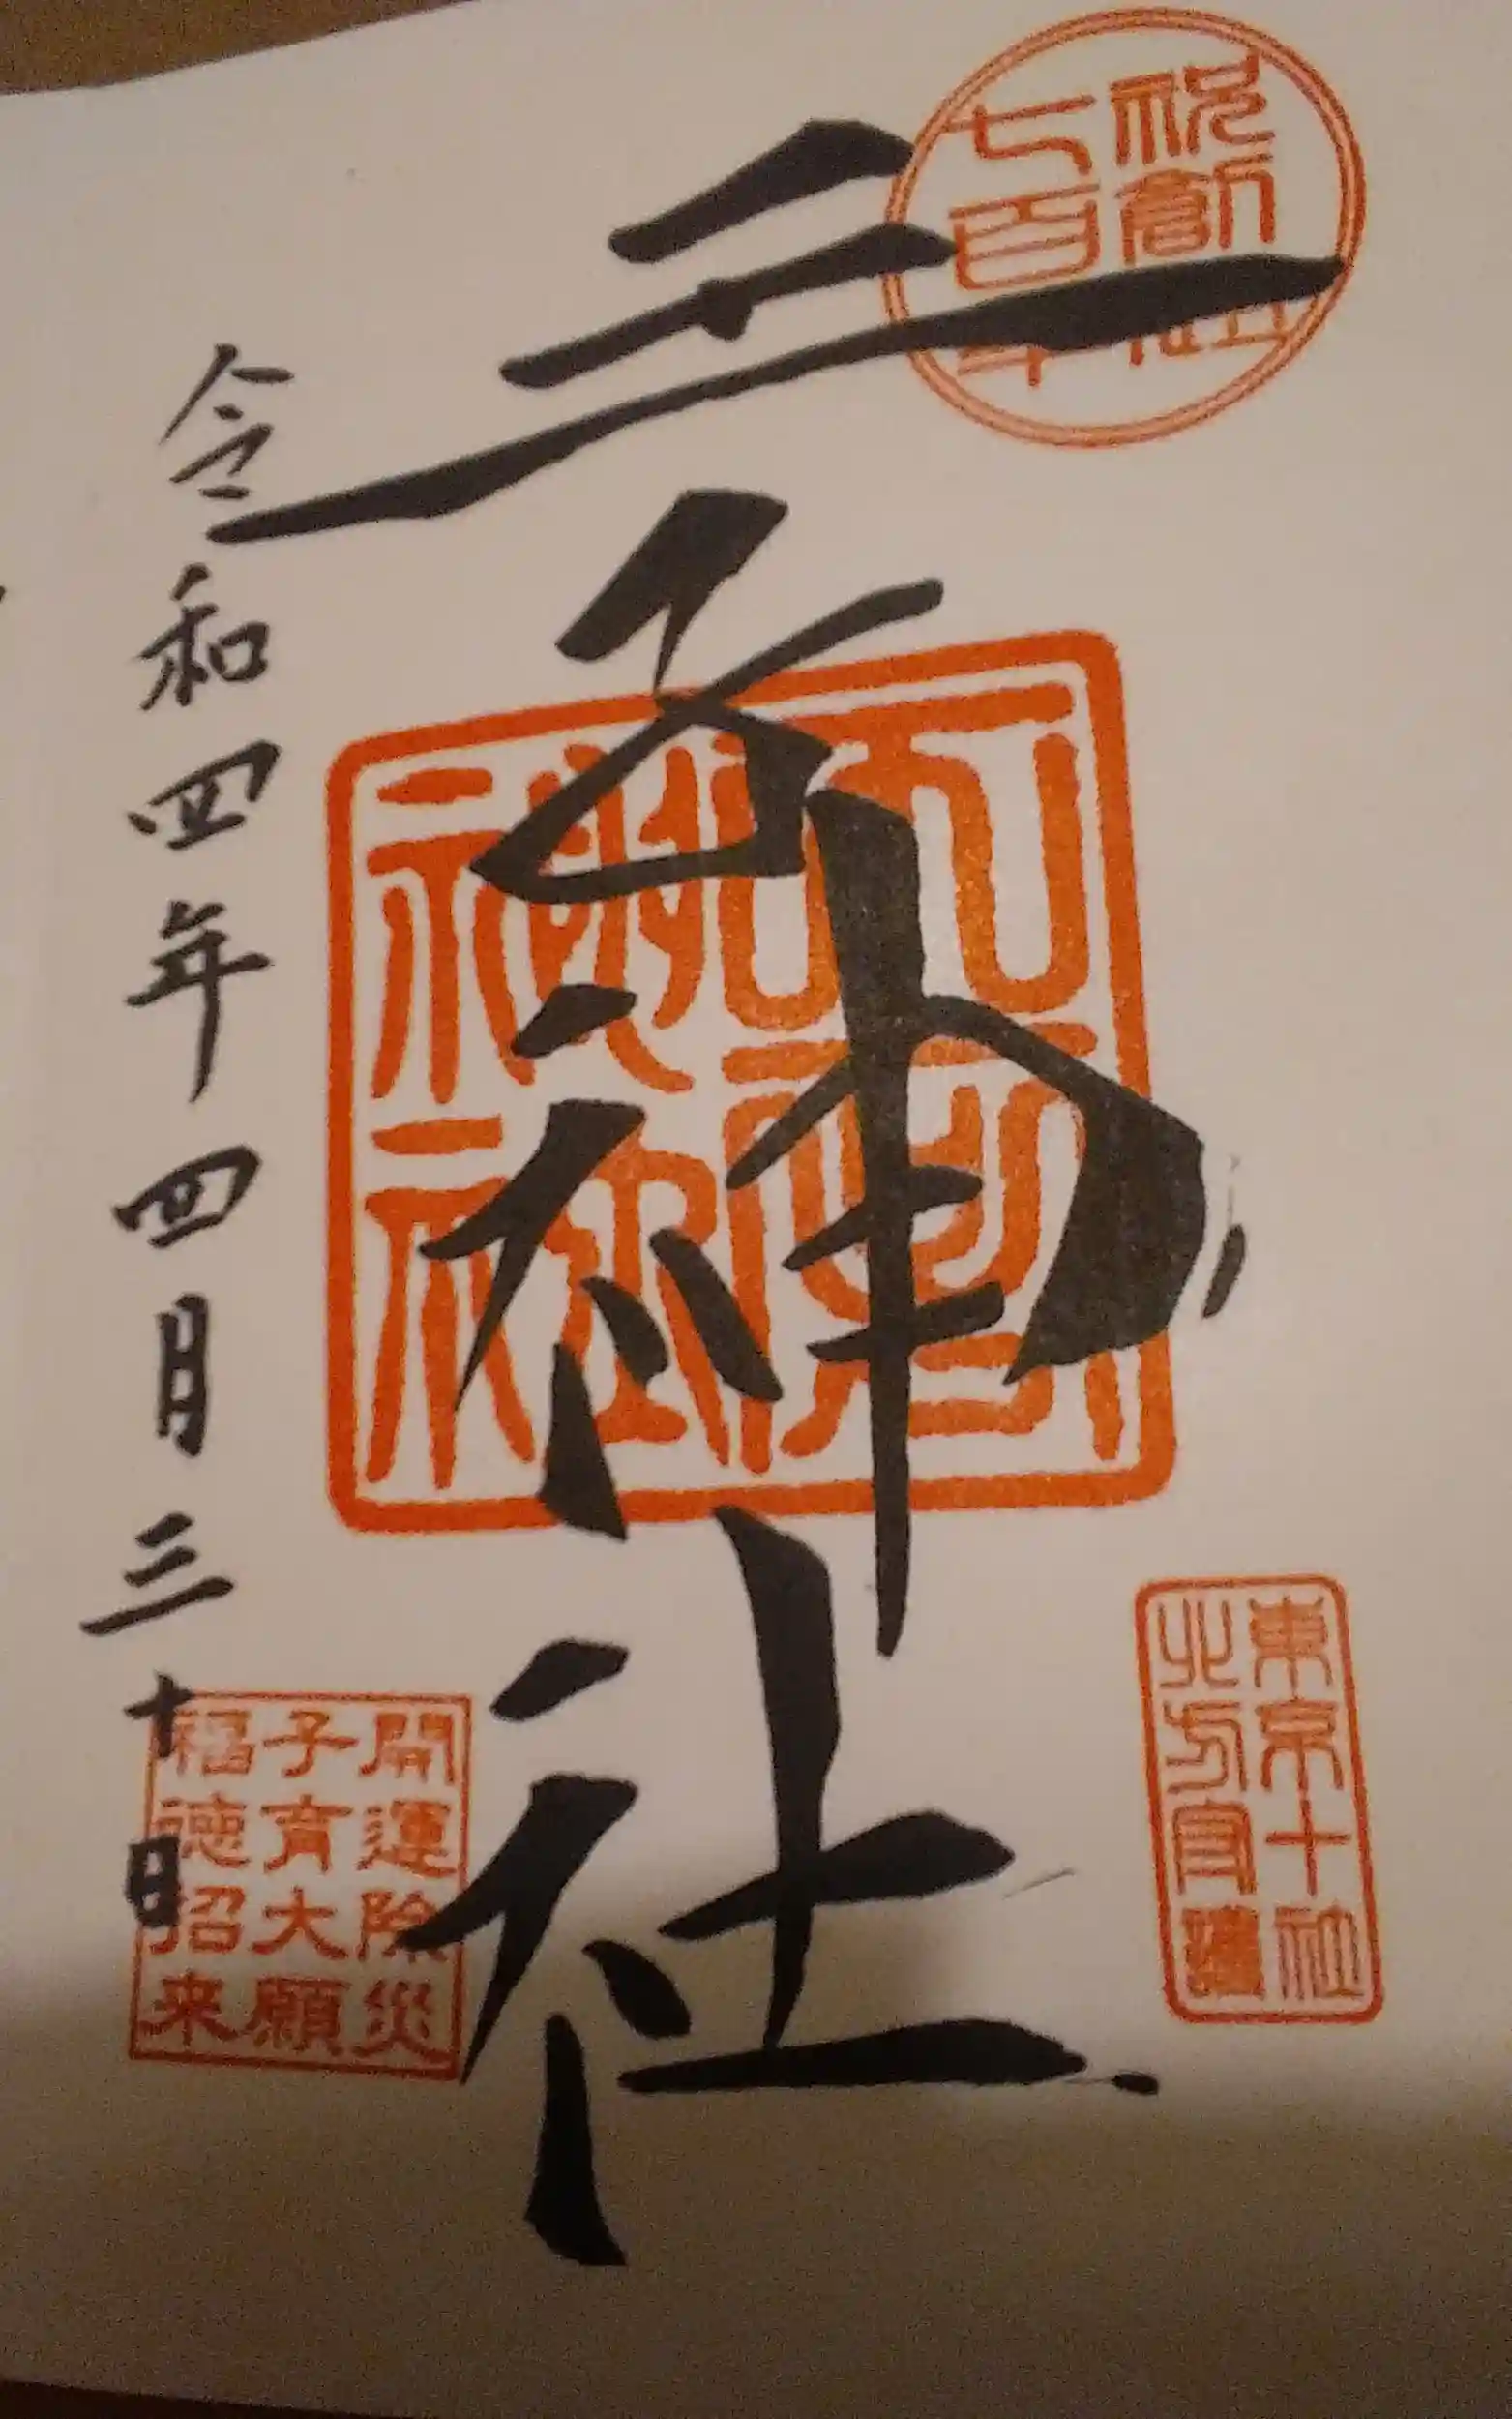 祝創
七百年
王子神社
神社
東京十社
北方守護
開運除災
子育大願
福徳招来
令和四年四月三十日